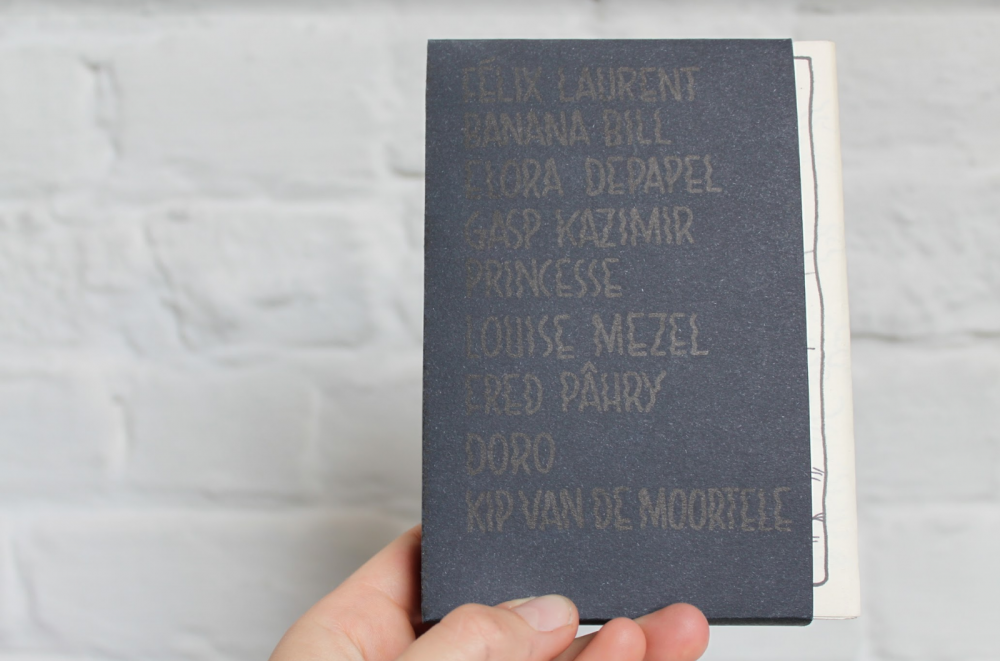 FÉLIX LAURENT
BANANA BILL
ELORA DEPAPEL
GASP KAZIMIR
PRINCESSE
LOUISE MEZEL
FRED PÂHRY
DORO
KIP VAN DE MOORTELE